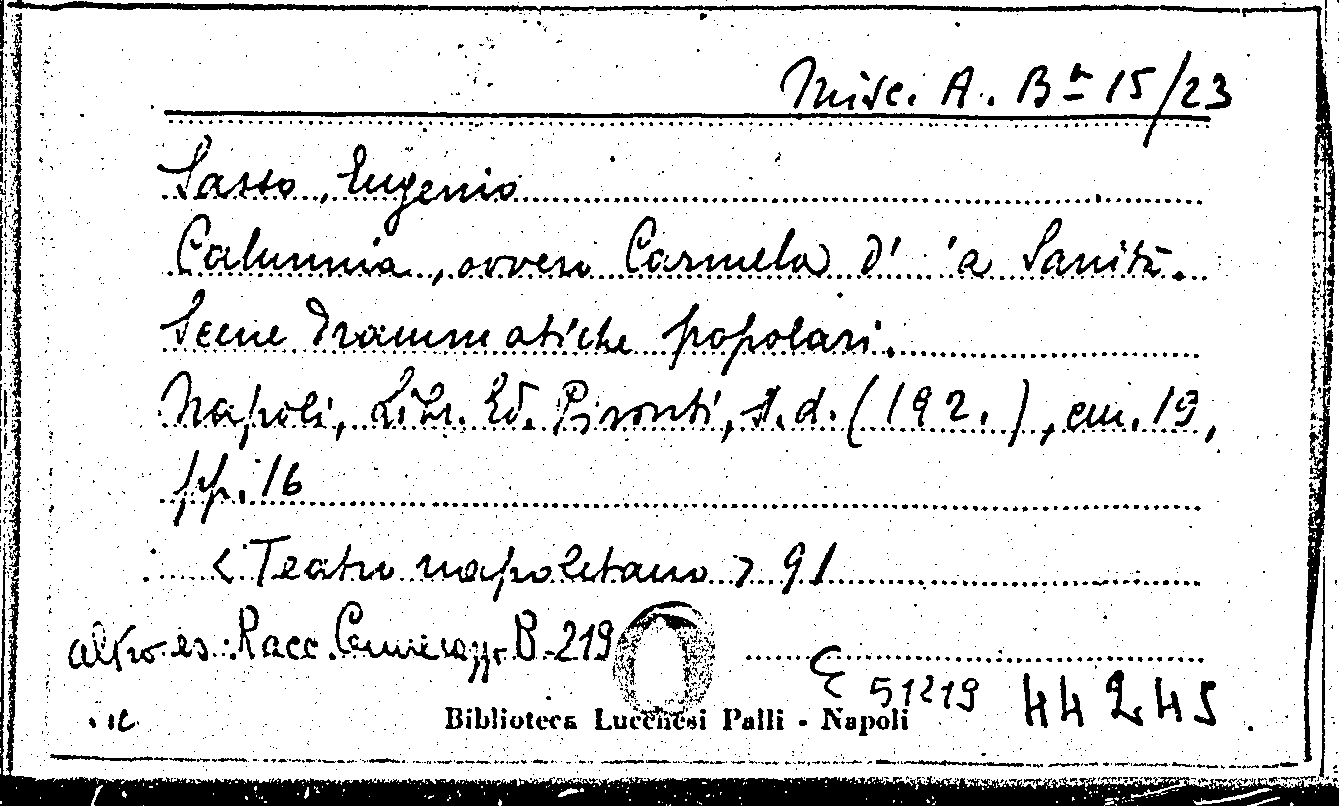 Misc. A. Bª 15/23
Sasso, Eugenio
Calunnia, ovvero Carmela d' 'a Sanità.
Scene drammatiche popolari.
Napoli, Libr. Ed. Pironti, s.d. (192.), cm. 19,
pp. 16
< Teatro napoletano > 91
altro es. Racc. B-219
51219 44245
Biblioteca Lucchesi Palli - Napoli